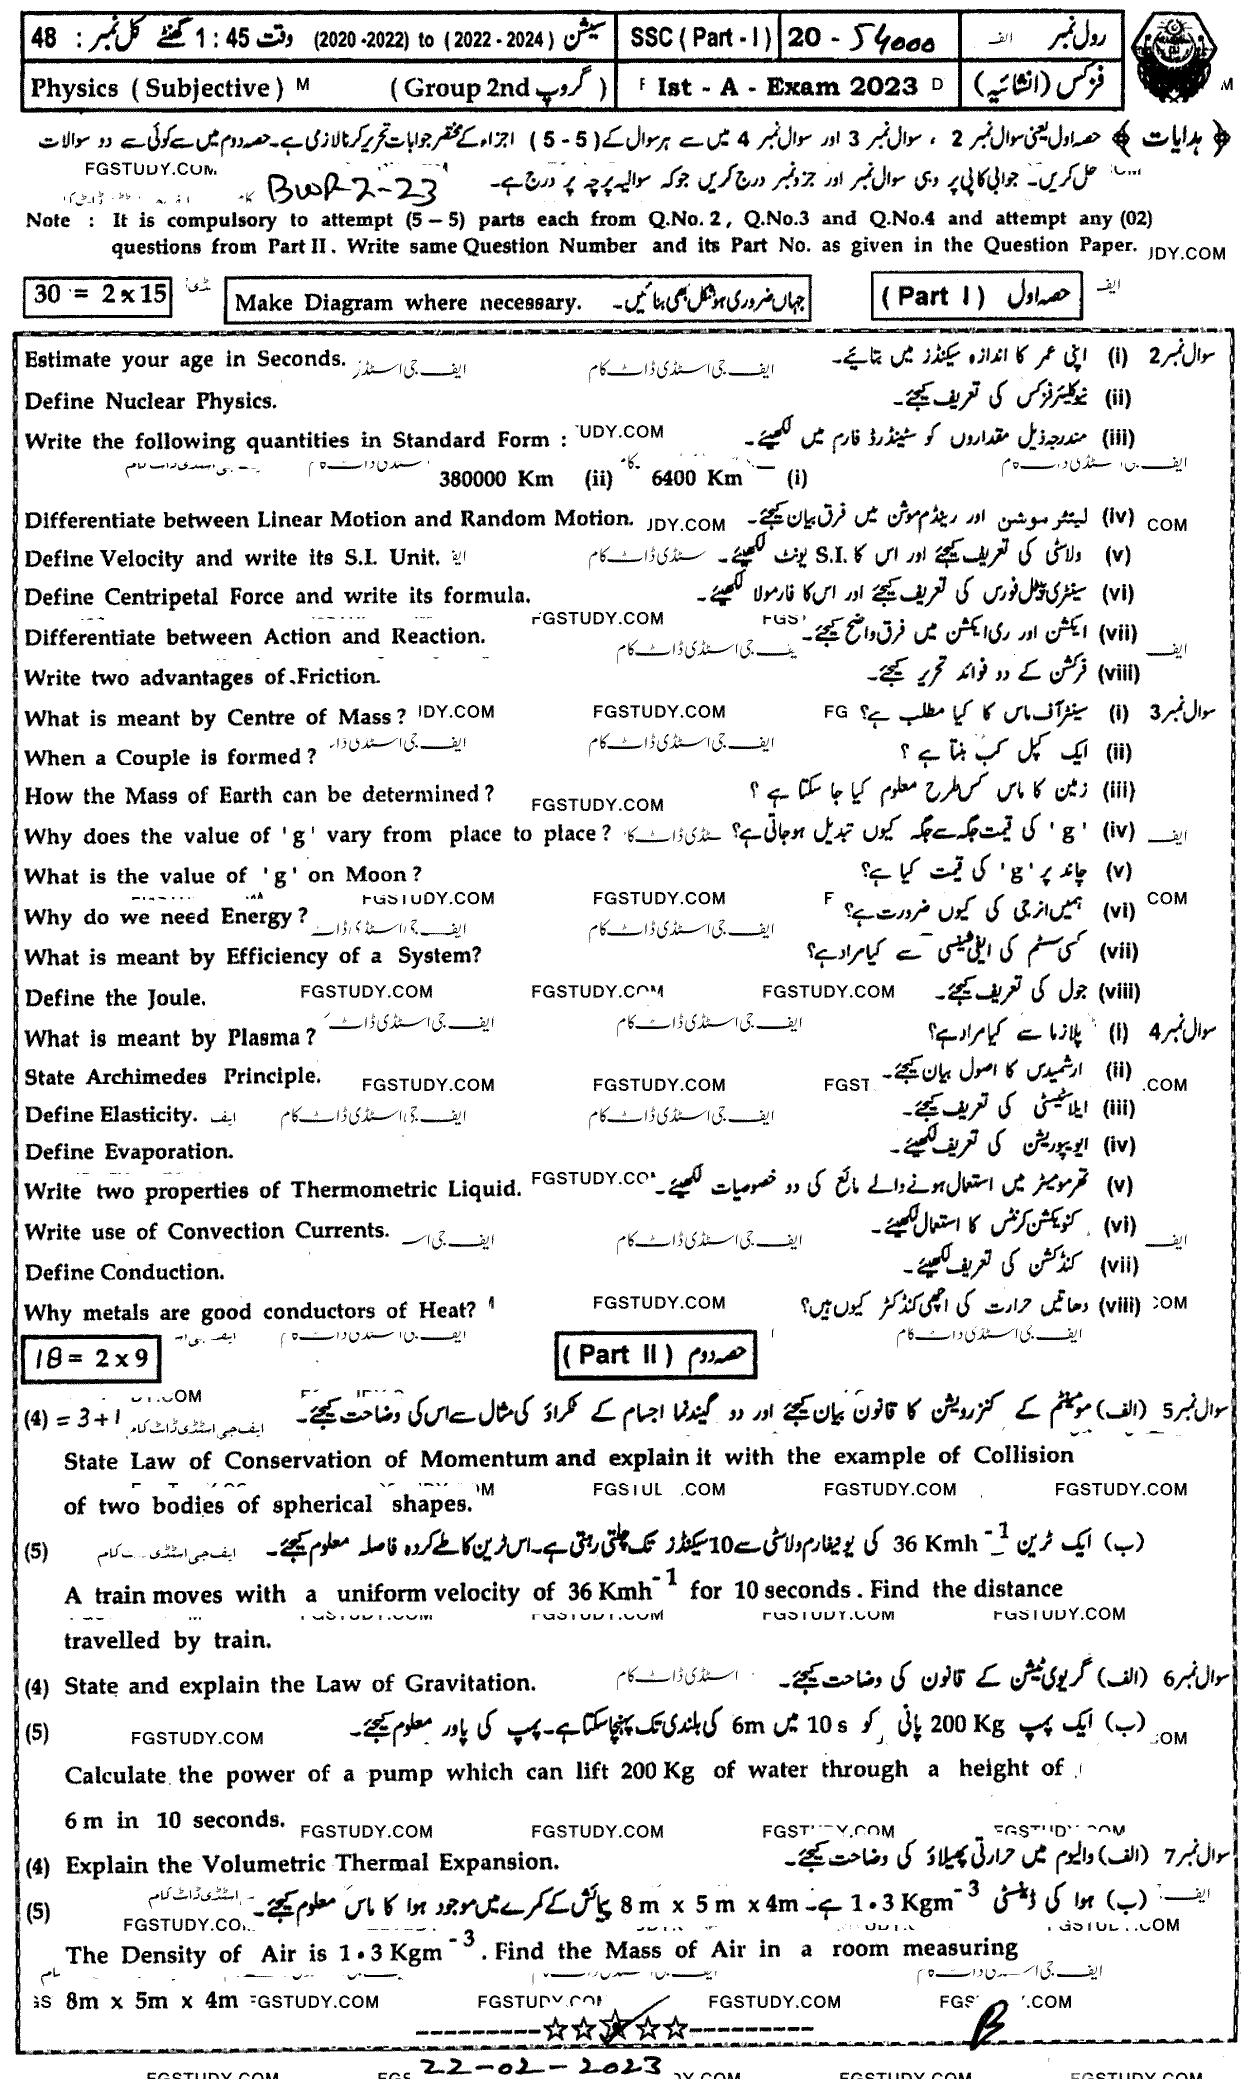 رول نمبر الف 20 - 54000 SSC ( Part - I ) سیشن ( 2022 - 2024 ) to (2020 -2022) وقت 1 : 45 گھنٹے کل نمبر : 48
فزکس (انشائیہ) F Ist - A - Exam 2023 D ( گروپ Group 2nd ) Physics ( Subjective ) M
M
﴿ ہدایات ﴾ حصہ اول یعنی سوال نمبر 2 ، سوال نمبر 3 اور سوال نمبر 4 میں سے ہر سوال کے ( 5 - 5 ) اجزاء کے مختصر جوابات تحریر کرنا لازمی ہے۔ حصہ دوم میں سے کوئی سے دو سوالات
حل کریں۔ جوابی کاپی پر وہی سوال نمبر اور جزو نمبر درج کریں جو کہ سوالیہ پرچہ پر درج ہے۔ BWP-2-23
FGSTUDY.COM
Note : It is compulsory to attempt (5 – 5) parts each from Q.No. 2 , Q.No.3 and Q.No.4 and attempt any (02)
questions from Part II . Write same Question Number and its Part No. as given in the Question Paper.
حصہ اول ( Part I ) جہاں ضروری ہو شکل بھی بنائیں۔ Make Diagram where necessary. 30 = 2 x 15
سوال نمبر 2 (i) اپنی عمر کا اندازہ سیکنڈز میں بتائیے۔ Estimate your age in Seconds.
(ii) نیوکلیئر فزکس کی تعریف کیجئے۔ Define Nuclear Physics.
(iii) مندرجہ ذیل مقداروں کو سٹینڈرڈ فارم میں لکھیئے۔ Write the following quantities in Standard Form :
380000 Km (ii) 6400 Km (i)
(iv) لینئر موشن اور رینڈم موشن میں فرق بیان کیجئے۔ Differentiate between Linear Motion and Random Motion.
(v) ولاسٹی کی تعریف کیجئے اور اس کا S.I. یونٹ لکھیئے۔ Define Velocity and write its S.I. Unit.
(vi) سینٹری پیٹل فورس کی تعریف کیجئے اور اس کا فارمولا لکھیئے۔ Define Centripetal Force and write its formula.
(vii) ایکشن اور ری ایکشن میں فرق واضح کیجئے۔ Differentiate between Action and Reaction.
(viii) فرکشن کے دو فوائد تحریر کیجئے۔ Write two advantages of Friction.
سوال نمبر 3 (i) سینٹر آف ماس کا کیا مطلب ہے؟ What is meant by Centre of Mass ?
(ii) ایک کپل کب بنتا ہے ؟ When a Couple is formed ?
(iii) زمین کا ماس کس طرح معلوم کیا جا سکتا ہے ؟ How the Mass of Earth can be determined ?
(iv) 'g' کی قیمت جگہ سے جگہ کیوں تبدیل ہو جاتی ہے؟ Why does the value of 'g' vary from place to place ?
(v) چاند پر 'g' کی قیمت کیا ہے؟ What is the value of 'g' on Moon ?
(vi) ہمیں انرجی کی کیوں ضرورت ہے؟ Why do we need Energy ?
(vii) کسی سسٹم کی ایفی شینسی سے کیا مراد ہے؟ What is meant by Efficiency of a System?
(viii) جول کی تعریف کیجئے۔ Define the Joule.
سوال نمبر 4 (i) پلازما سے کیا مراد ہے؟ What is meant by Plasma ?
(ii) ارشمیدس کا اصول بیان کیجئے۔ State Archimedes Principle.
(iii) ایلاسٹیسٹی کی تعریف کیجئے۔ Define Elasticity.
(iv) ایویپوریشن کی تعریف لکھیئے۔ Define Evaporation.
(v) تھرمومیٹر میں استعمال ہونے والے مائع کی دو خصوصیات لکھیئے۔ Write two properties of Thermometric Liquid.
(vi) کنویکشن کرنٹس کا استعمال لکھیئے۔ Write use of Convection Currents.
(vii) کنڈکشن کی تعریف لکھیئے۔ Define Conduction.
(viii) دھاتیں حرارت کی اچھی کنڈکٹر کیوں ہیں؟ Why metals are good conductors of Heat?
حصہ دوم ( Part II ) 18 = 2 x 9
سوال نمبر 5 (الف) مومینٹم کے کنزرویشن کا قانون بیان کیجئے اور دو گیند نما اجسام کے ٹکراؤ کی مثال سے اس کی وضاحت کیجئے۔ (4) = 3+1
State Law of Conservation of Momentum and explain it with the example of Collision
of two bodies of spherical shapes.
(ب) ایک ٹرین 36 Kmh⁻¹ کی یونیفارم ولاسٹی سے 10 سیکنڈز تک چلتی رہتی ہے۔ اس ٹرین کا طے کردہ فاصلہ معلوم کیجئے۔ (5)
A train moves with a uniform velocity of 36 Kmh⁻¹ for 10 seconds . Find the distance
travelled by train.
سوال نمبر 6 (الف) گریوی ٹیشن کے قانون کی وضاحت کیجئے۔ State and explain the Law of Gravitation. (4)
(ب) ایک پمپ 200 Kg پانی کو 10 s میں 6m کی بلندی تک پہنچا سکتا ہے۔ پمپ کی پاور معلوم کیجئے۔ (5)
Calculate the power of a pump which can lift 200 Kg of water through a height of
6 m in 10 seconds.
سوال نمبر 7 (الف) والیوم میں حرارتی پھیلاؤ کی وضاحت کیجئے۔ Explain the Volumetric Thermal Expansion. (4)
(ب) ہوا کی ڈینسٹی 1.3 Kgm⁻³ ہے۔ 8 m x 5 m x 4m پیمائش کے کمرے میں موجود ہوا کا ماس معلوم کیجئے۔ (5)
The Density of Air is 1.3 Kgm⁻³ . Find the Mass of Air in a room measuring
8m x 5m x 4m
22-02-2023
FGSTUDY.COM